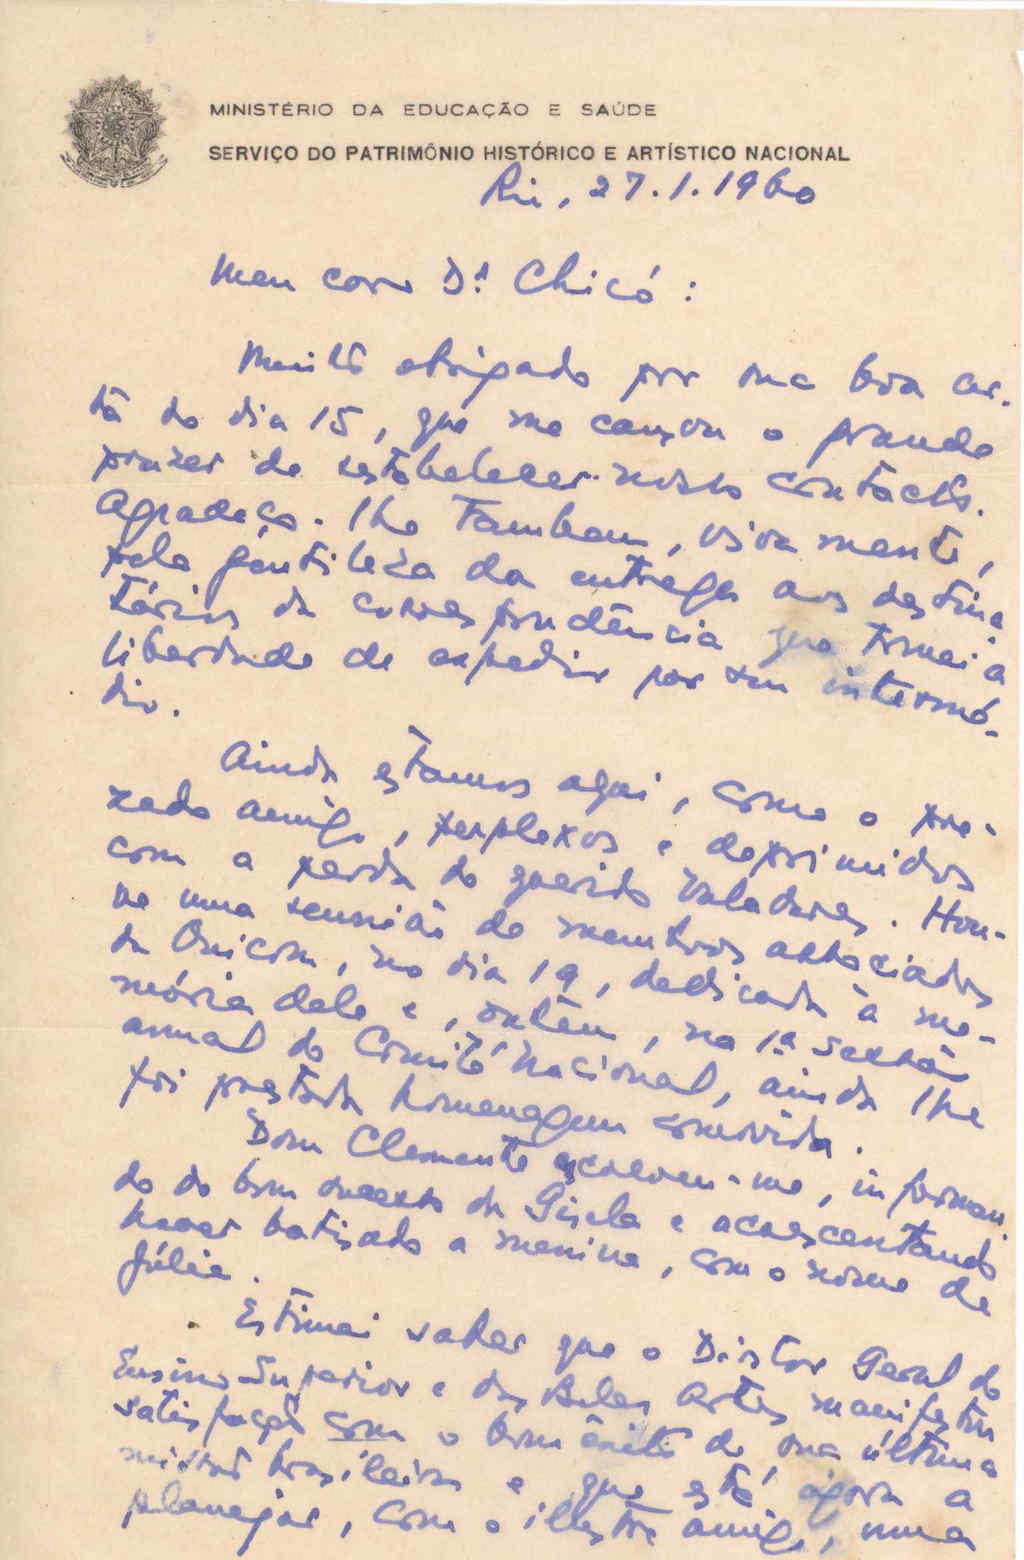 MINISTÉRIO DA EDUCAÇÃO E SAÚDE
SERVIÇO DO PATRIMÔNIO HISTÓRICO E ARTÍSTICO NACIONAL
Rio, 27.1.1960
Meu caro Dr. Chicó:
Muito obrigado por sua boa car-
ta do dia 15, que me causou o grande
prazer de restabelecer nosso contacto.
Agradeço-lhe tambem, vivamente,
pela gentileza da entrega aos destina-
tários da correspondência que tomei a
liberdade de expedir por seu intermé-
dio.
Ainda estamos aqui, como o pre-
zado amigo, perplexos e deprimidos
com a perda do querido Valadares. Hou-
ve uma reunião de membros associados
da Onicom, no dia 19, dedicada à me-
mória dele e, ontem, na 1ª sessão
anual do Comitê Nacional, ainda lhe
foi prestada homenagem comovida.
Dom Clemente escreveu-me, informan-
do do bom sucesso da Gisela e acrescentando
haver batisado a menina, com o nome de
Júlia.
Estimei saber que o Diretor Geral do
Ensino Superior e das Belas Artes manifestou
satisfação com o bom êxito de sua última
missão brasileira e que está agora a
planejar, com o ilustre amigo, uma